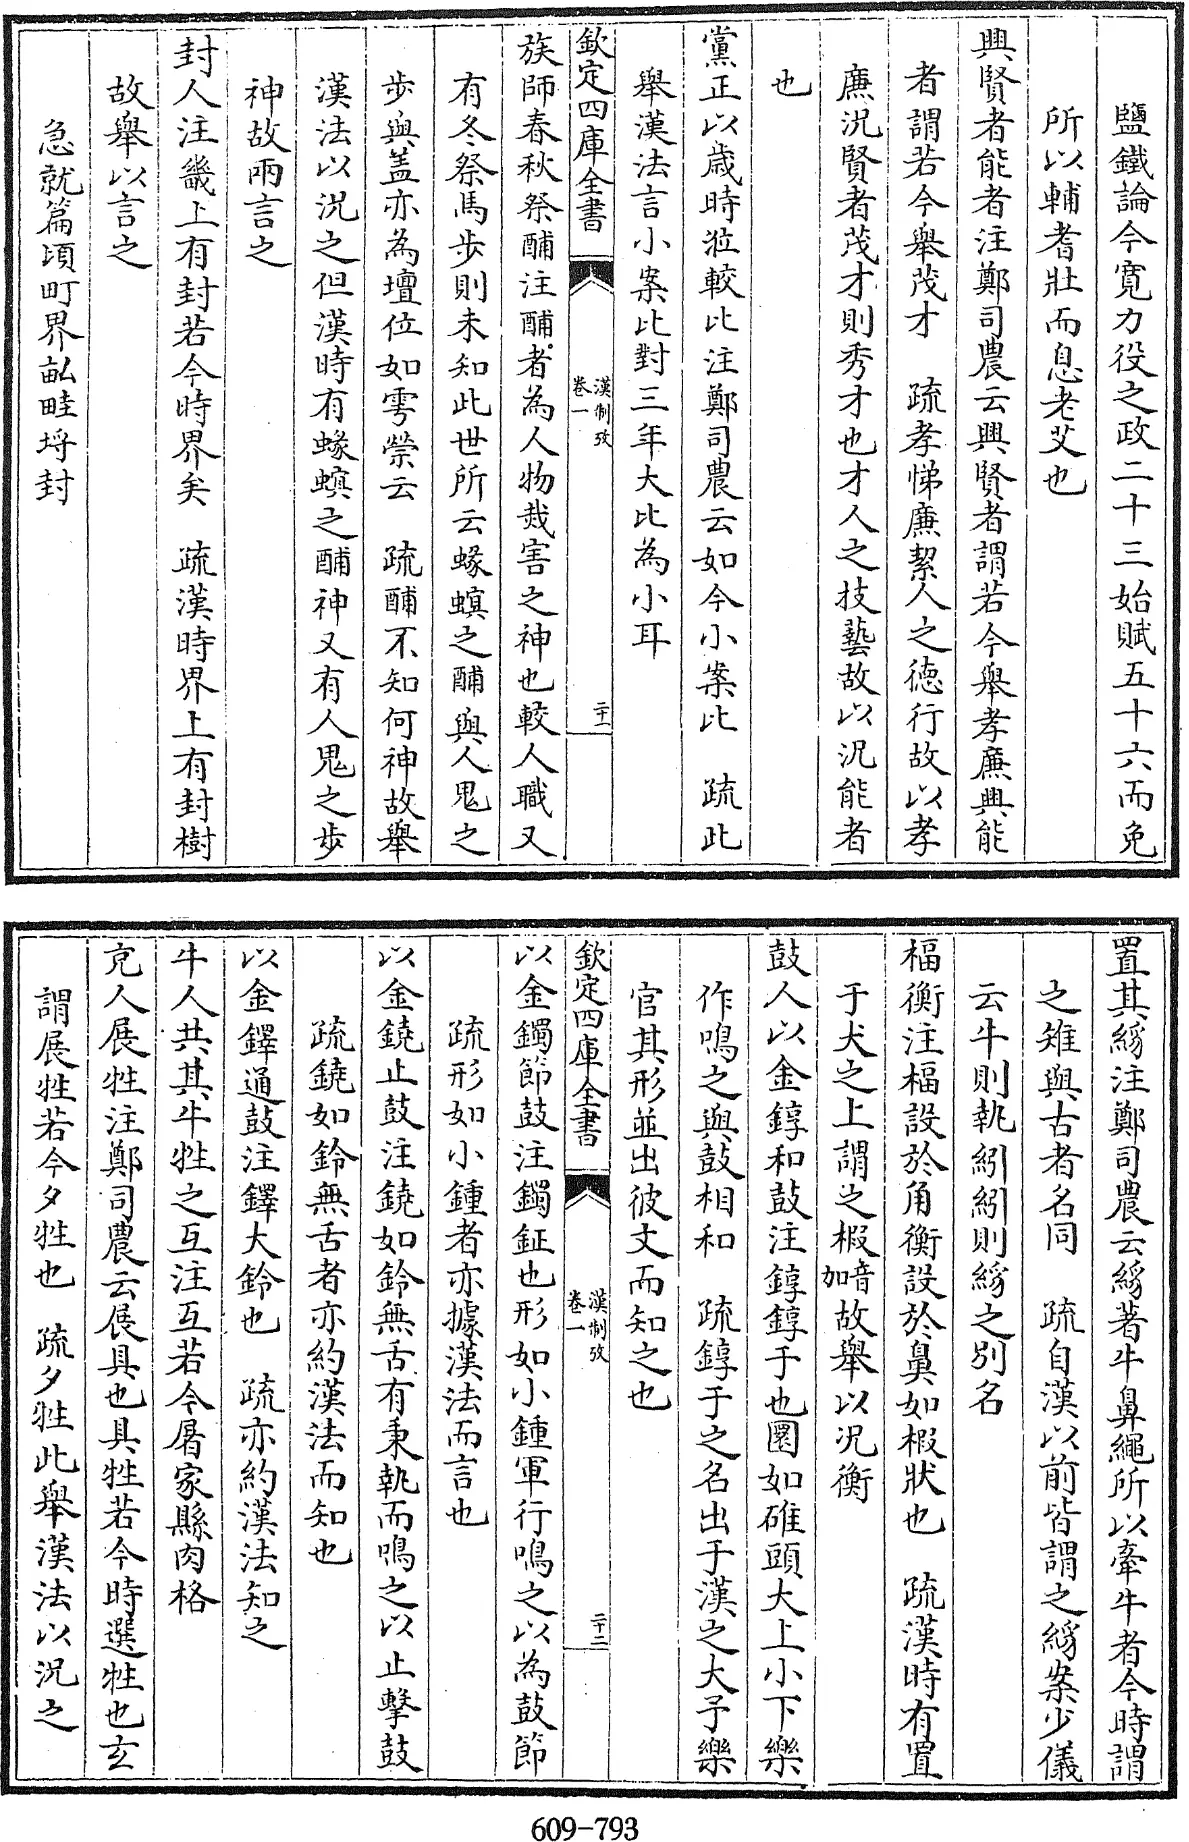 鹽鐵論今寬力役之政二十三始賦五十六而免
所以輔耆壯而息老艾也
興賢者能者注鄭司農云興賢者謂若今舉孝廉興能
者謂若今舉茂才　疏孝悌廉絜人之德行故以孝
廉況賢者茂才則秀才也才人之技藝故以況能者
也
黨正以歲時涖較比注鄭司農云如今小案比　疏此
舉漢法言小案比對三年大比為小耳
欽定四庫全書　漢制攷卷一　二十一
族師春秋祭酺注酺者為人物烖害之神也較人職又
有冬祭馬步則未知此世所云蝝螟之酺與人鬼之
步與蓋亦為壇位如雩禜云　疏酺不知何神故舉
漢法以況之但漢時有蝝螟之酺神又有人鬼之步
神故兩言之
封人注畿上有封若今時界矣　疏漢時界上有封樹
故舉以言之
急就篇頃町界畝畦埒封
置其絼注鄭司農云絼著牛鼻繩所以牽牛者今時謂
之雉與古者名同　疏自漢以前皆謂之絼案少儀
云牛則執紖紖則絼之別名
楅衡注楅設於角衡設於鼻如椵狀也　疏漢時有置
于犬之上謂之椵音加故舉以況衡
鼓人以金錞和鼓注錞錞于也圜如碓頭大上小下樂
作鳴之與鼓相和　疏錞于之名出于漢之大予樂
官其形並出彼文而知之也
欽定四庫全書　漢制攷卷一　二十二
以金鐲節鼓注鐲鉦也形如小鍾軍行鳴之以為鼓節
疏形如小鍾者亦據漢法而言也
以金鐃止鼓注鐃如鈴無舌有秉執而鳴之以止擊鼓
疏鐃如鈴無舌者亦約漢法而知也
以金鐸通鼓注鐸大鈴也　疏亦約漢法知之
牛人共其牛牲之互注互若今屠家縣肉格
充人展牲注鄭司農云展具也具牲若今時選牲也玄
謂展牲若今夕牲也　疏夕牲此舉漢法以況之
609-793